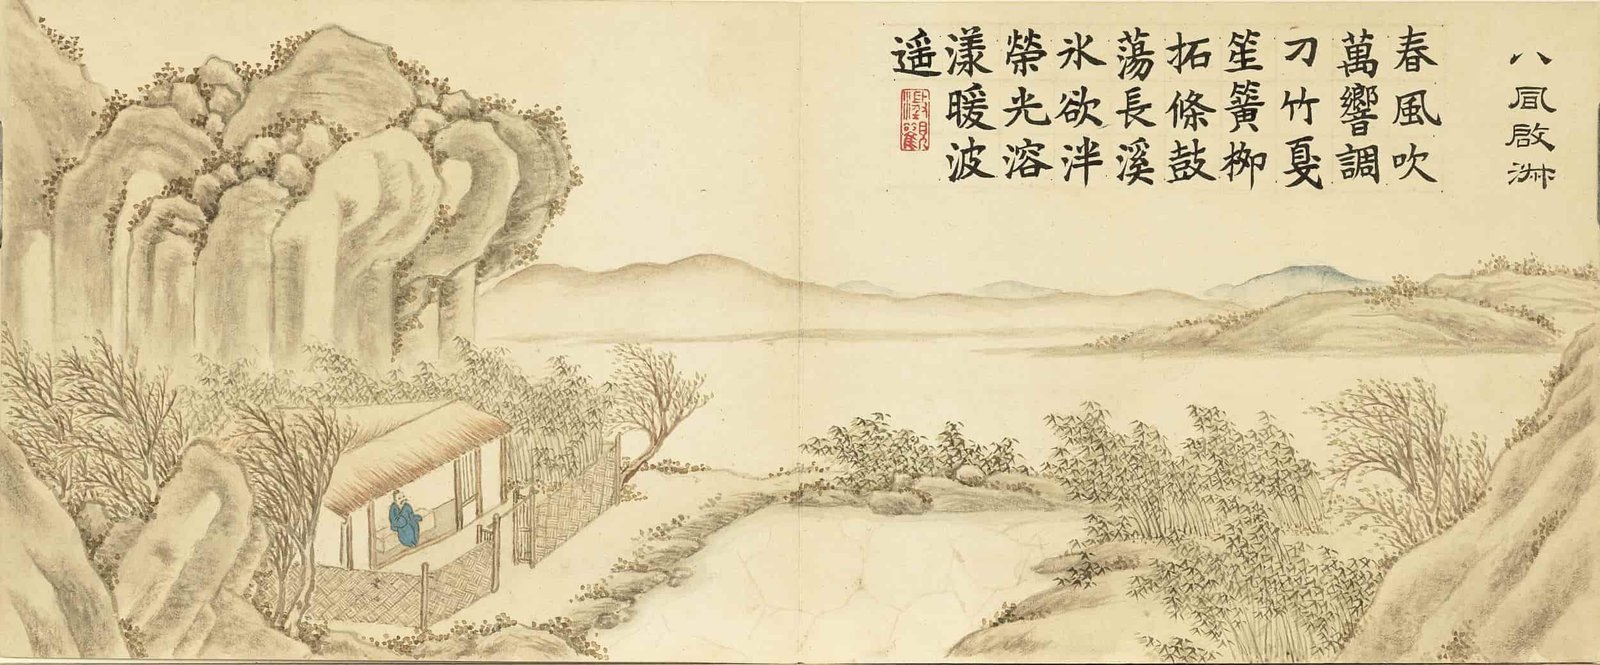 八風啟淑
春風吹
萬響調
刁竹戛
笙簧柳
拓條鼓
蕩長溪
氷欲泮
榮光溶
漾暖波
遥